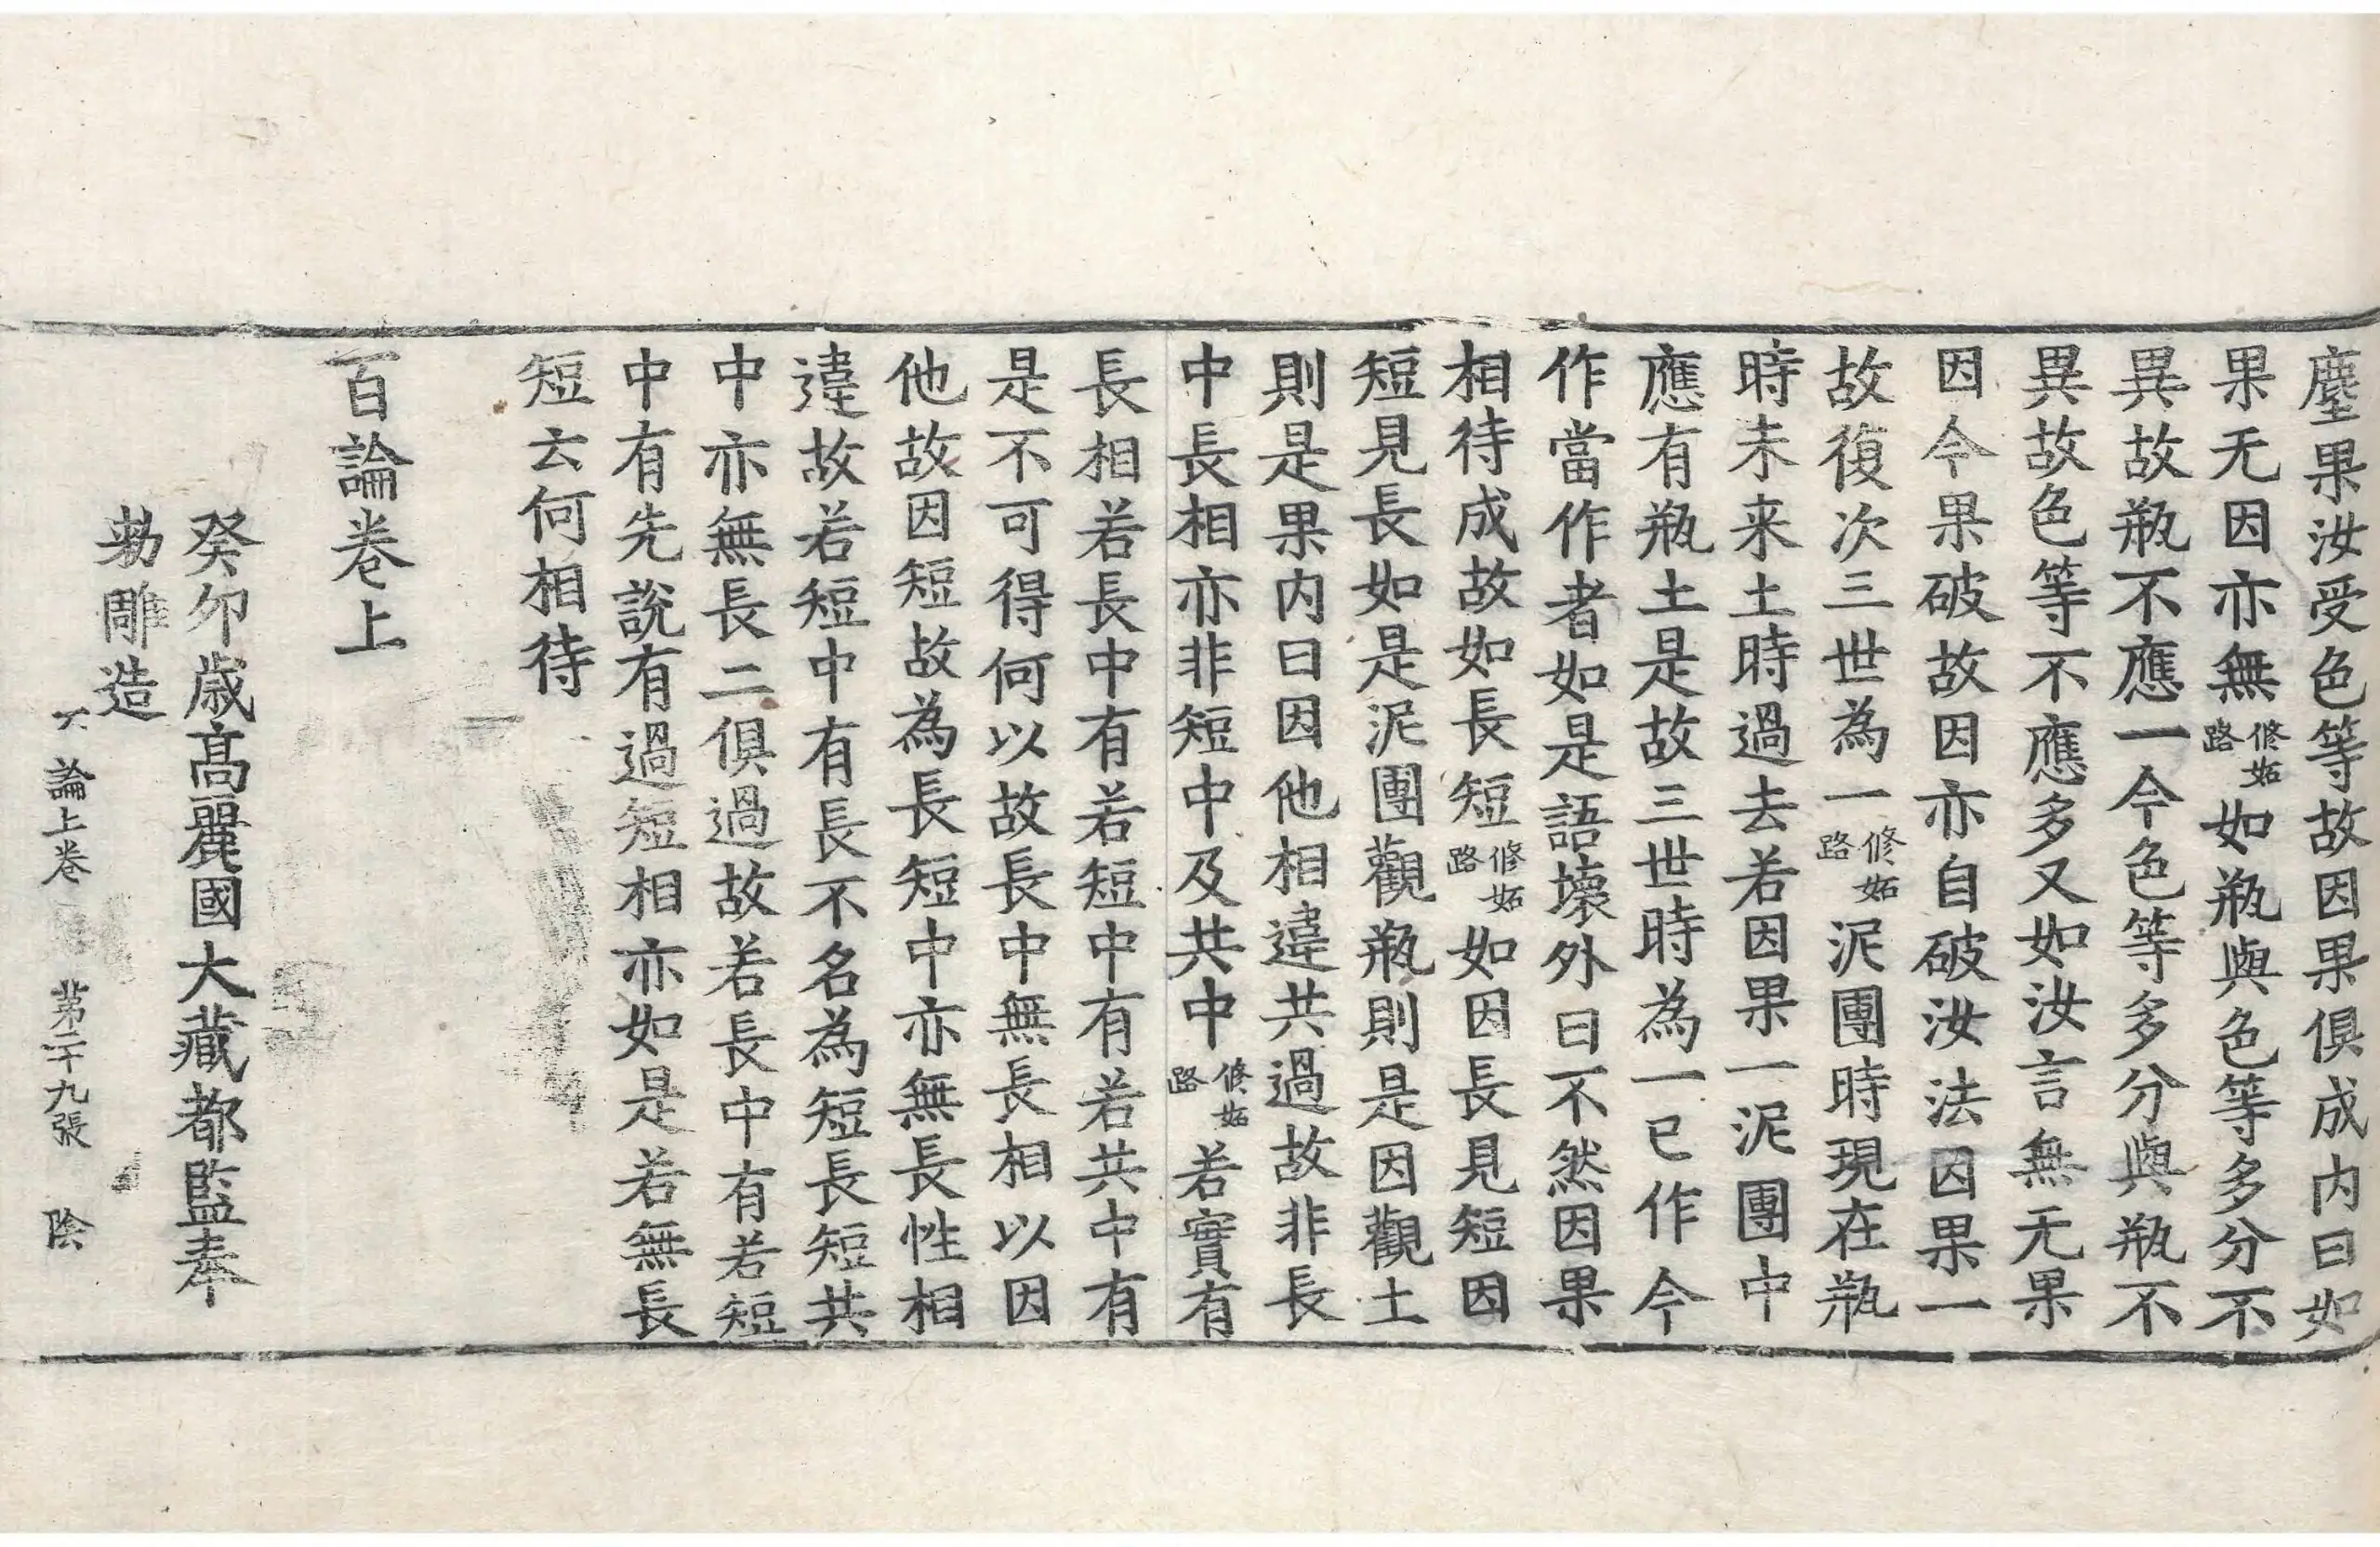 塵果汝受色等故因果俱成内曰如
果无因亦無修妬路如瓶與色等多分不
異故瓶不應一今色等多分與瓶不
異故色等不應多又如汝言無无果
因今果破故因亦自破汝法因果一
故復次三世為一修妬路泥團時現在瓶
時未来土時過去若因果一泥團中
應有瓶土是故三世時為一已作今
作當作者如是語壞外曰不然因果
相待成故如長短修妬路如因長見短因
短見長如是泥團觀瓶則是因觀土
則是果内曰因他相違共過故非長
中長相亦非短中及共中修妬路若實有
長相若長中有若短中有若共中有
是不可得何以故長中無長相以因
他故因短故為長短中亦無長性相
違故若短中有長不名為短長短共
中亦無長二俱過故若長中有若短
中有先說有過短相亦如是若無長
短云何相待
百論卷上
癸夘歲高麗國大藏都監奉
勑雕造
論上卷 第二十九張 陰